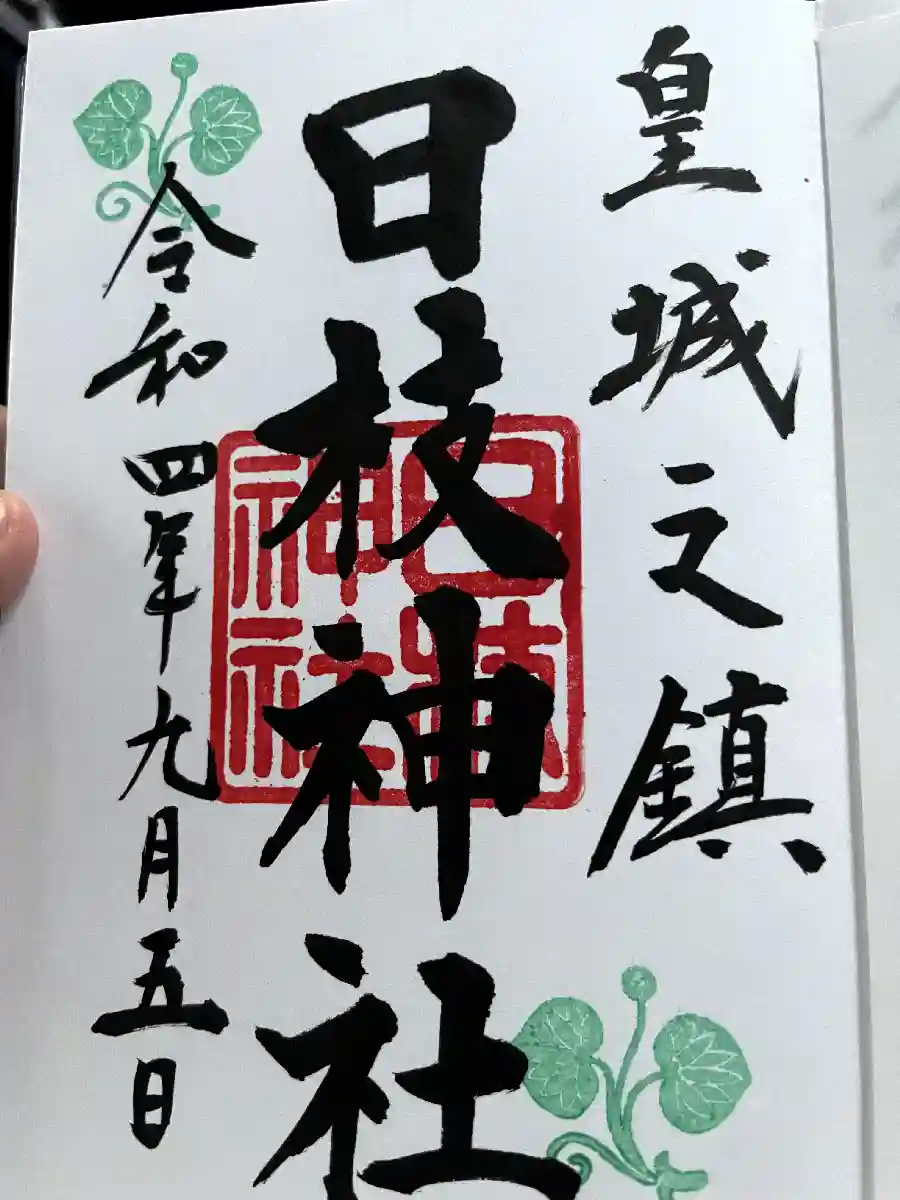 皇城之鎮
日枝神社
日枝
神社
令和四年九月五日